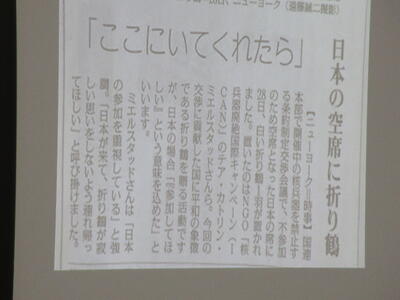 日、ニューヨーク(遠藤誠二撮影)
「ここにいてくれたら」
日本の空席に折り鶴
【ニューヨーク=時事】国連
本部で開催中の核兵器を禁止す
る条約制定交渉会議で、不参加
のため空席となった日本の席に
28日、白い折り鶴1羽が置かれ
ました。置いたのはNGO「核
兵器廃絶国際キャンペーン(I
CAN)のテア・カトリン・
ミエルスタッドさんら。今回の
交渉に貢献した国に平和の象徴
である折り鶴を贈る活動です
が、日本の場合「『参加してほ
しい』という意味を込めた」と
いいます。
ミエルスタッドさんは「日本
の参加を重視している」と強
調。「日本が来て、折り鶴が寂
しい思いをしないよう連れ帰っ
てほしい」と呼び掛けました。